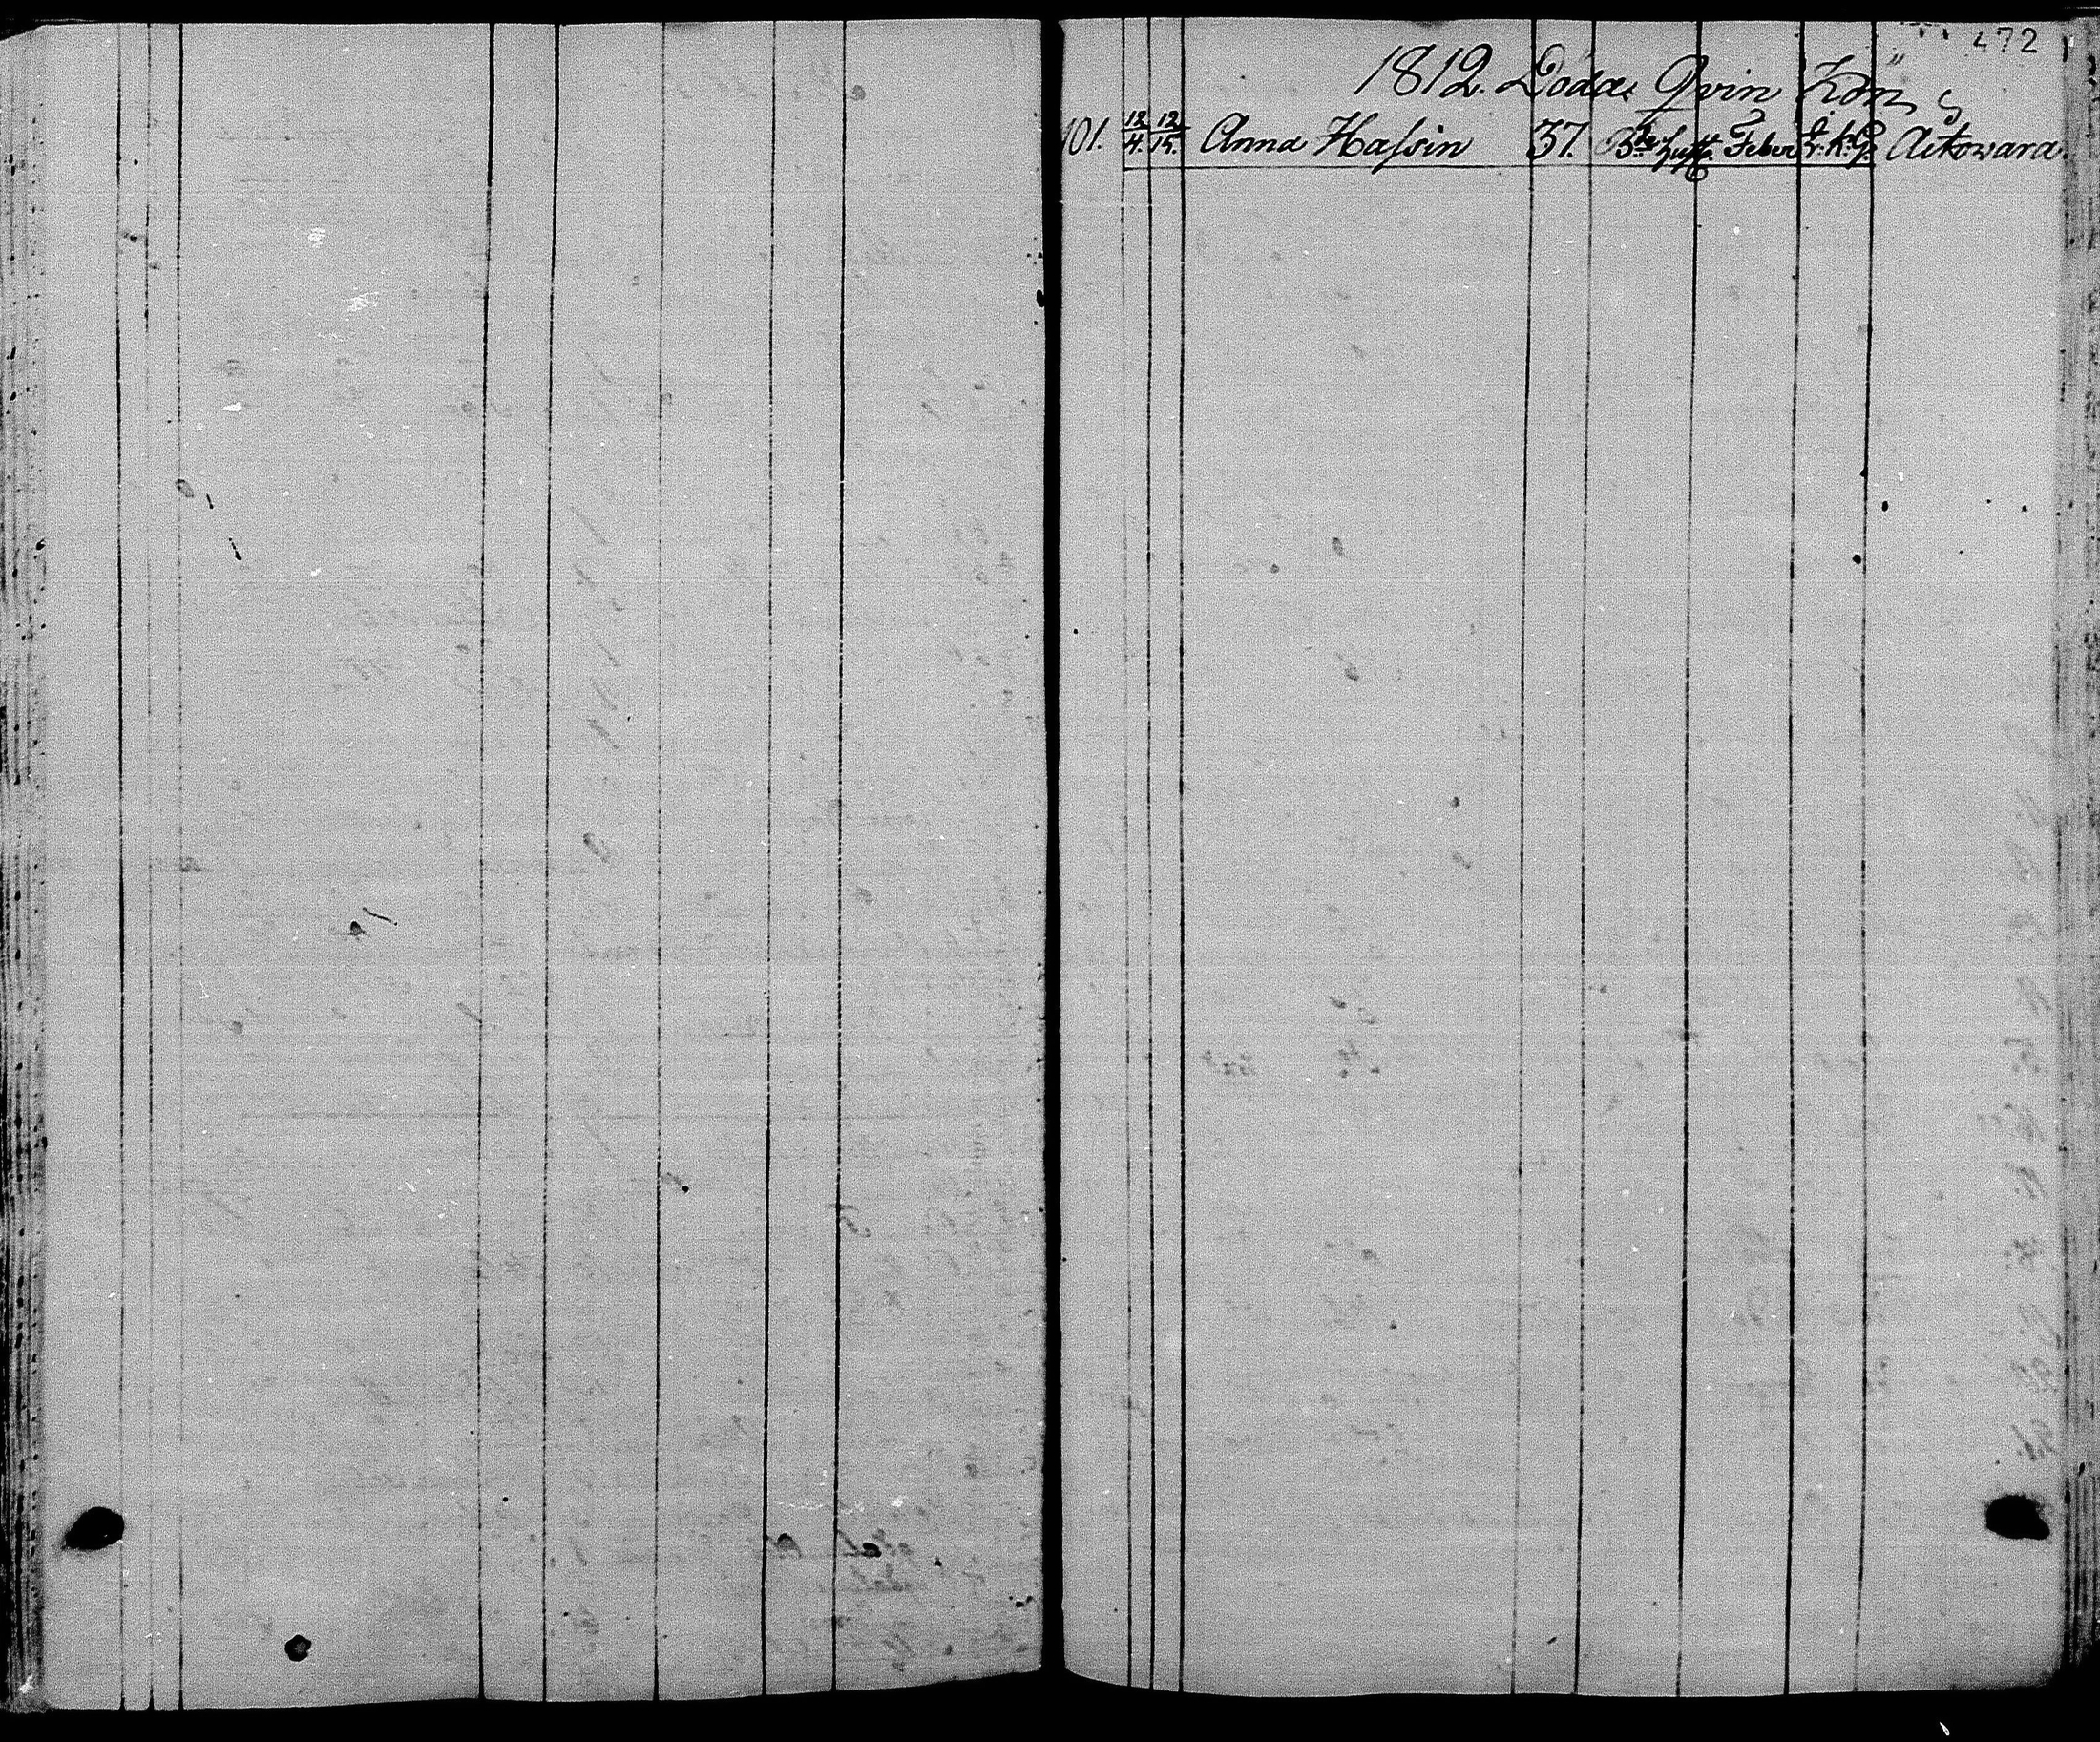 472
1812. Döda Qvin Kön
101. 12/4. 12/15. Anna Haſsin 37. B:de hust. Feber I.K.G. Aitowara.